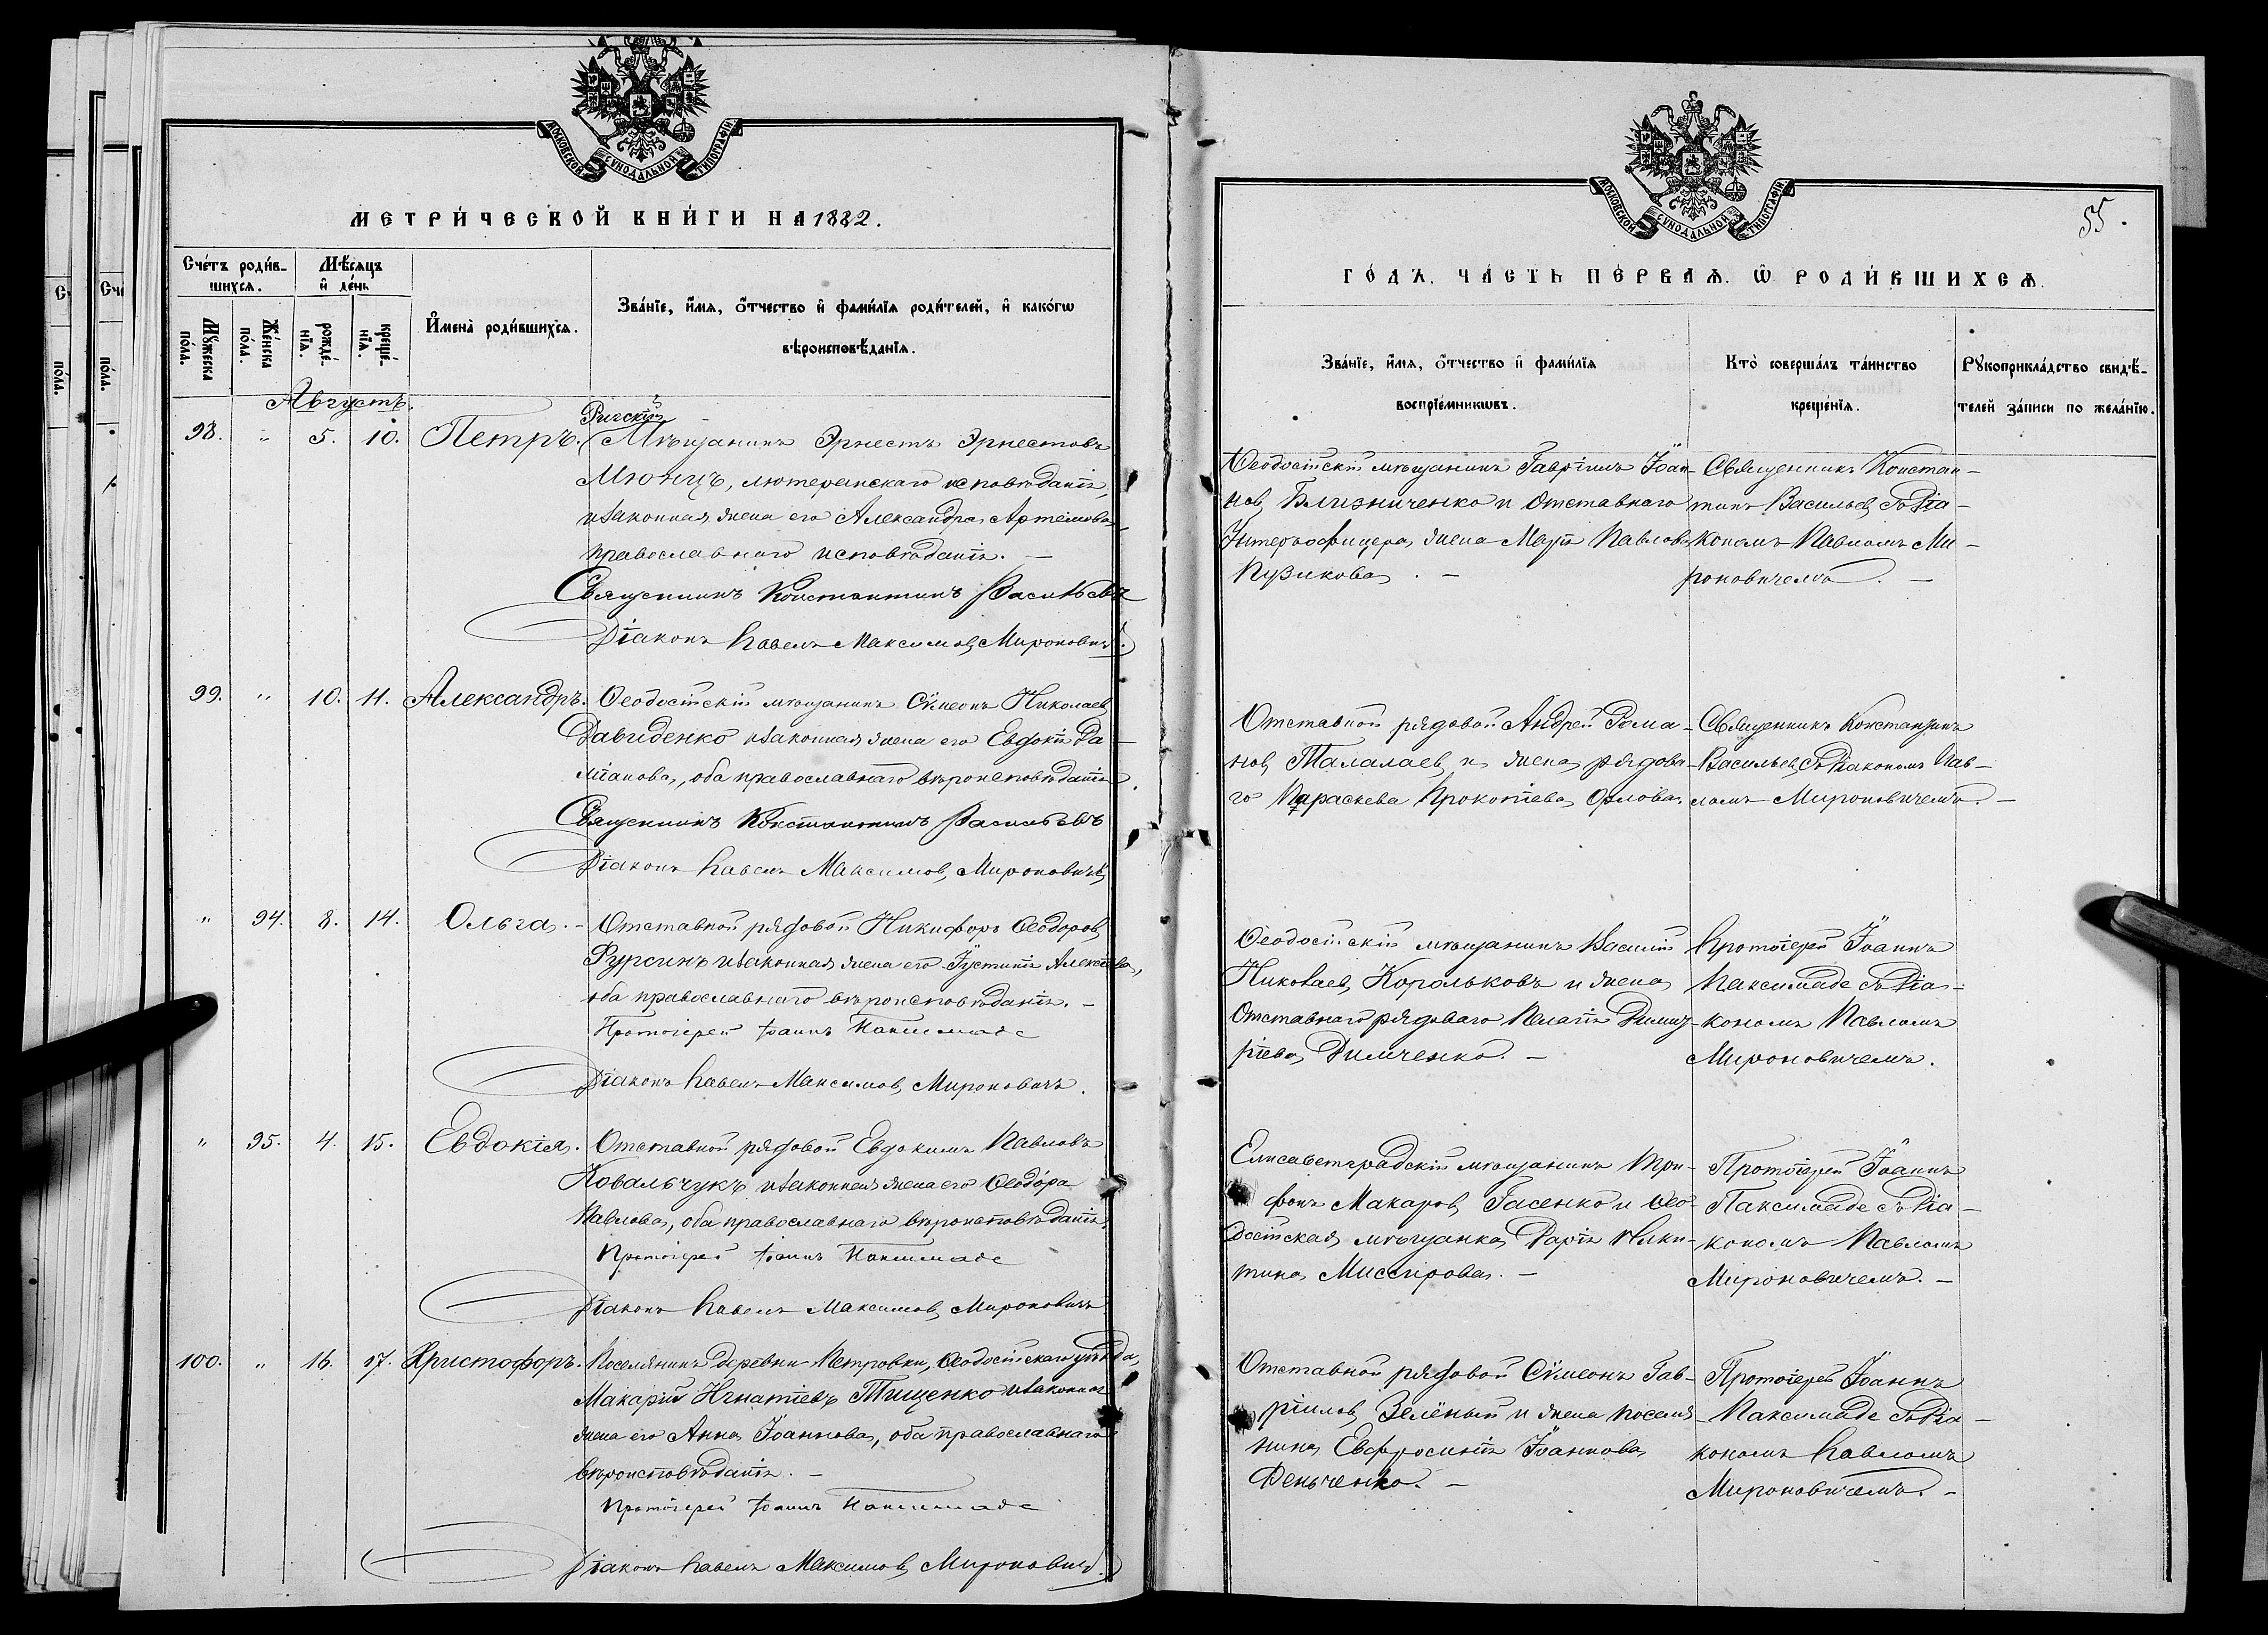 МОСКОВСКОЙ СѴНОДАЛЬНОЙ ТИПОГРАФІИ
МЕТРИ́ЧЕСКОЙ КНИ́ГИ НА 1882.
Сче́тъ роди́в-
шихся.
Мѣ́сяцъ
и҆ де́нь
Мꙋ́жеска
по́ла.
Же́нска
по́ла.
рожде́-
нїѧ.
креще́-
нїѧ.
И҆мена̀ роди́вшихсѧ.
Зва́нїе, и҆́мѧ, ѻ҆́тчество и҆ фами́лїѧ роди́телей, и҆ како́гѡ
вѣроисповѣ́данїѧ.
Августъ.
98. " 5. 10. Петръ.
Рижскій
Мѣщанинъ Эрнестъ Эрнестовъ
Мюнцъ, лютеранскаго исповѣданія,
и законная жена его Александра Артемова
православнаго исповѣданія. —
Священникъ Константинъ Васильевъ
Діаконъ Павелъ Максимовъ Мироновичъ.
99. " 10. 11. Александръ.
Ѳеодосійскій мѣщанинъ Сѵмеонъ Николаевъ
Давиденко и законная жена его Евдокія Да-
міанова, оба православнаго вѣроисповѣданія.
Священникъ Константинъ Васильевъ
Діаконъ Павелъ Максимовъ Мироновичъ
" 94. 8. 14. Ольга. -
Отставной рядовой Никифоръ Ѳеодоровъ
Фурсинъ и законная жена его Іустинія Алексѣева,
оба православнаго вѣроисповѣданія. —
Протоіерей Іоаннъ Паксимаде
Діаконъ Павелъ Максимовъ Мироновичъ.
" 95. 4. 15. Евдокія.
Отставной рядовой Евдокимъ Павловъ
Ковальчукъ и законная жена его Ѳеодора
Павлова, оба православнаго вѣроисповѣданія.
Протоіерей Іоаннъ Паксимаде
Діаконъ Павелъ Максимовъ Мироновичъ
100. " 16. 17. Христофоръ.
Поселянинъ деревни Петровки, Ѳеодосійскаго уѣзда,
Макарій Игнатіевъ Тищенко и законная
жена его Анна Іоаннова, оба православнаго
вѣроисповѣданія. —
Протоіерей Іоаннъ Паксимаде
Діаконъ Павелъ Максимовъ Мироновичъ.
МОСКОВСКОЙ СѴНОДАЛЬНОЙ ТИПОГРАФІИ
55.
ГО́ДЪ, ЧА́СТЬ ПЕ́РВАѦ. Ѡ҆ РОДИ́ВШИХСѦ.
Зва́нїе, и҆́мѧ, ѻ҆́тчество и҆ фами́лїѧ
воспрїе́мникѡвъ.
Кто̀ соверша́лъ та́инство
креще́нїѧ.
Рꙋкоприкла́дство свидѣ́-
телей за́писи по жела́нїю.
Ѳеодосійскій мѣщанинъ Гавріилъ Іоан-
новъ Близниченко и Отставнаго
Унтеръ-офицера жена Марія Павлова
Пузикова. —
Священникъ Констан-
тинъ Васильевъ съ Діа-
кономъ Павломъ Ми-
роновичемъ. —
Отставной рядовой Андрей Рома-
новъ Талалаевъ и жена рядова-
го Параскева Прокопіева Орлова.
Священникъ Константинъ
Васильевъ съ Діакономъ Пав-
ломъ Мироновичемъ. —
Ѳеодосійскій мѣщанинъ Василій
Николаевъ Корольковъ и жена
Отставнаго рядоваго Пелагія Димит-
ріева Димченко. —
Протоіерей Іоаннъ
Паксимаде съ Діа-
кономъ Павломъ
Мироновичемъ.
Елисаветградскій мѣщанинъ Три-
фонъ Макаровъ Гасенко и Ѳео-
досійская мѣщанка Дарія Ники-
тина Миссирова. —
Протоіерей Іоаннъ
Паксимаде съ Діа-
кономъ Павломъ
Мироновичемъ. —
Отставной рядовой Сѵмеонъ Гав-
ріиловъ Зелёный и жена поселя-
нина Евфросинія Іоаннова
Феньченко. —
Протоіерей Іоаннъ
Паксимаде съ Діа-
кономъ Павломъ
Мироновичемъ. -